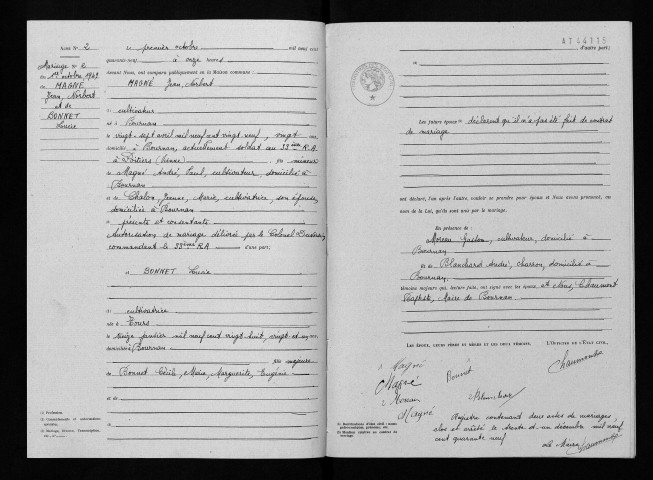 ACTE N° 2
Mariage N° 2
du 1er octobre 1949
MAGNÉ
Jean, Norbert
et de
BONNET
Lucie
Le premier octobre mil neuf cent
quarante neuf à onze heures
devant Nous, ont comparu publiquement en la Maison commune :
MAGNÉ Jean, Norbert
(1) cultivateur
né à Bournan
le vingt-sept avril mil neuf cent vingt neuf, vingt ans,
domicilié à Bournan, actuellement soldat au 33ème R.A.
à Poitiers (Vienne) fils mineur
de Magné André, Paul, cultivateur, domicilié à
Bournan
et de Chalon, Jeanne, Marie, cultivatrice, son épouse,
domiciliée à Bournan
présents et consentants
Autorisation de mariage délivrée par le Colonel
commandant le 33ème R.A d'une part;
et BONNET Lucie
(1) cultivatrice
née à Tours
le seize janvier mil neuf cent vingt huit, vingt-et-un ans,
domiciliée à Bournan
fille majeure
de Bonnet Cécile, Marie, Marguerite, Eugénie
et de
(1) Profession.
(2) Consentements et autorisations
AT44115
d'autre part;
Les futurs époux déclarent qu'il n'a pas été fait de contrat
de mariage
ont déclaré, l'un après l'autre, vouloir se prendre pour époux et Nous avons prononcé, au
nom de la Loi, qu'ils sont unis par le mariage.
En présence de :
Moreau Gaston, cultivateur, domicilié à
Bournan
et de Blanchard André, charron, domicilié à
Bournan,
témoins majeurs qui, lecture faite, ont signé avec les époux, et Nous, Chaumont
Baptiste, Maire de Bournan.
LES ÉPOUX, LEURS PÈRES ET MÈRES ET LES DEUX TÉMOINS, L'OFFICIER DE L'ÉTAT CIVIL,
Magné
Bonnet
Chaumont
Magné
Moreau
Blanchard
Magné
Registre contenant deux actes de mariages
clos et arrêté le trente et un décembre mil neuf
cent quarante neuf
Le Maire, Chaumont